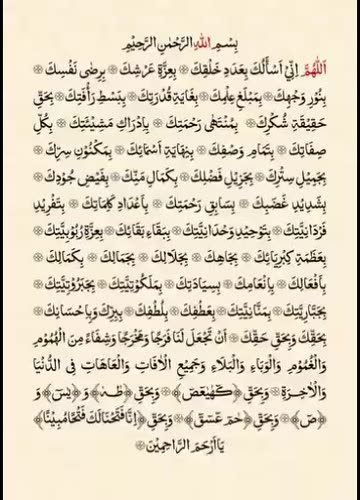 بِسْمِ اللهِ الرَّحْمٰنِ الرَّحِيْمِ
اَللّٰهُمَّ اِنِّيْ اَسْأَلُكَ بِعَدَدِ خَلْقِكَ ۞ بِعِزَّةِ عَرْشِكَ ۞ بِرِضٰى نَفْسِكَ ۞
بِنُوْرِ وَجْهِكَ ۞ بِمَبْلَغِ عِلْمِكَ ۞ بِغَايَةِ قُدْرَتِكَ ۞ بِبَسْطِ رَأْفَتِكَ ۞ بِحَقِّ
حَقِيْقَةِ شُكْرِكَ ۞ بِمُنْتَهٰى رَحْمَتِكَ ۞ بِاِدْرَاكِ مَشِيْئَتِكَ ۞ بِكُلِّ
صِفَاتِكَ ۞ بِتَمَامِ وَصْفِكَ ۞ بِنِهَايَةِ اَسْمَائِكَ ۞ بِمَكْنُوْنِ سِرِّكَ ۞
بِجَمِيْلِ سِتْرِكَ ۞ بِجَزِيْلِ فَضْلِكَ ۞ بِكَمَالِ مَنِّكَ ۞ بِفَيْضِ جُوْدِكَ ۞
بِشَدِيْدِ غَضَبِكَ ۞ بِسَابِقِ رَحْمَتِكَ ۞ بِاَعْدَادِ كَلِمَاتِكَ ۞ بِتَفْرِيْدِ
فَرْدَانِيَّتِكَ ۞ بِتَوْحِيْدِ وَحْدَانِيَّتِكَ ۞ بِبَقَاءِ بَقَائِكَ ۞ بِعِزَّةِ رُبُوْبِيَّتِكَ ۞
بِعَظَمَةِ كِبْرِيَائِكَ ۞ بِجَاهِكَ ۞ بِجَلَالِكَ ۞ بِجَمَالِكَ ۞ بِكَمَالِكَ ۞
بِاَفْعَالِكَ ۞ بِاِنْعَامِكَ ۞ بِسِيَادَتِكَ ۞ بِمَلَكُوْتِيَّتِكَ ۞ بِجَبَرُوْتِيَّتِكَ ۞
بِجَبَّارِيَّتِكَ ۞ بِمَنَّانِيَّتِكَ ۞ بِعَطْفِكَ ۞ بِلُطْفِكَ ۞ بِبِرِّكَ ۞ بِاِحْسَانِكَ ۞
بِحَقِّكَ وَبِحَقِّ حَقِّكَ ۞ اَنْ تَجْعَلَ لَنَا فَرَجًا وَمَخْرَجًا وَشِفَاءً مِنَ الْهُمُوْمِ
وَالْغُمُوْمِ وَالْوَبَاءِ وَالْبَلَاءِ وَجَمِيْعِ الْاٰفَاتِ وَالْعَاهَاتِ فِى الدُّنْيَا
وَالْاٰخِرَةِ ۞ وَبِحَقِّ ﴿كٓهٰيٰعٓصٓ﴾ ۞ وَبِحَقِّ ﴿طٰهٰ﴾ وَ ﴿يٰسٓ﴾ وَ
﴿صٓ﴾ ۞ وَبِحَقِّ ﴿حٰمٓ عٓسٓقٓ﴾ ۞ وَبِحَقِّ ﴿اِنَّا فَتَحْنَا لَكَ فَتْحًا مُبِيْنًا﴾
يَا اَرْحَمَ الرَّاحِمِيْنَ ۞